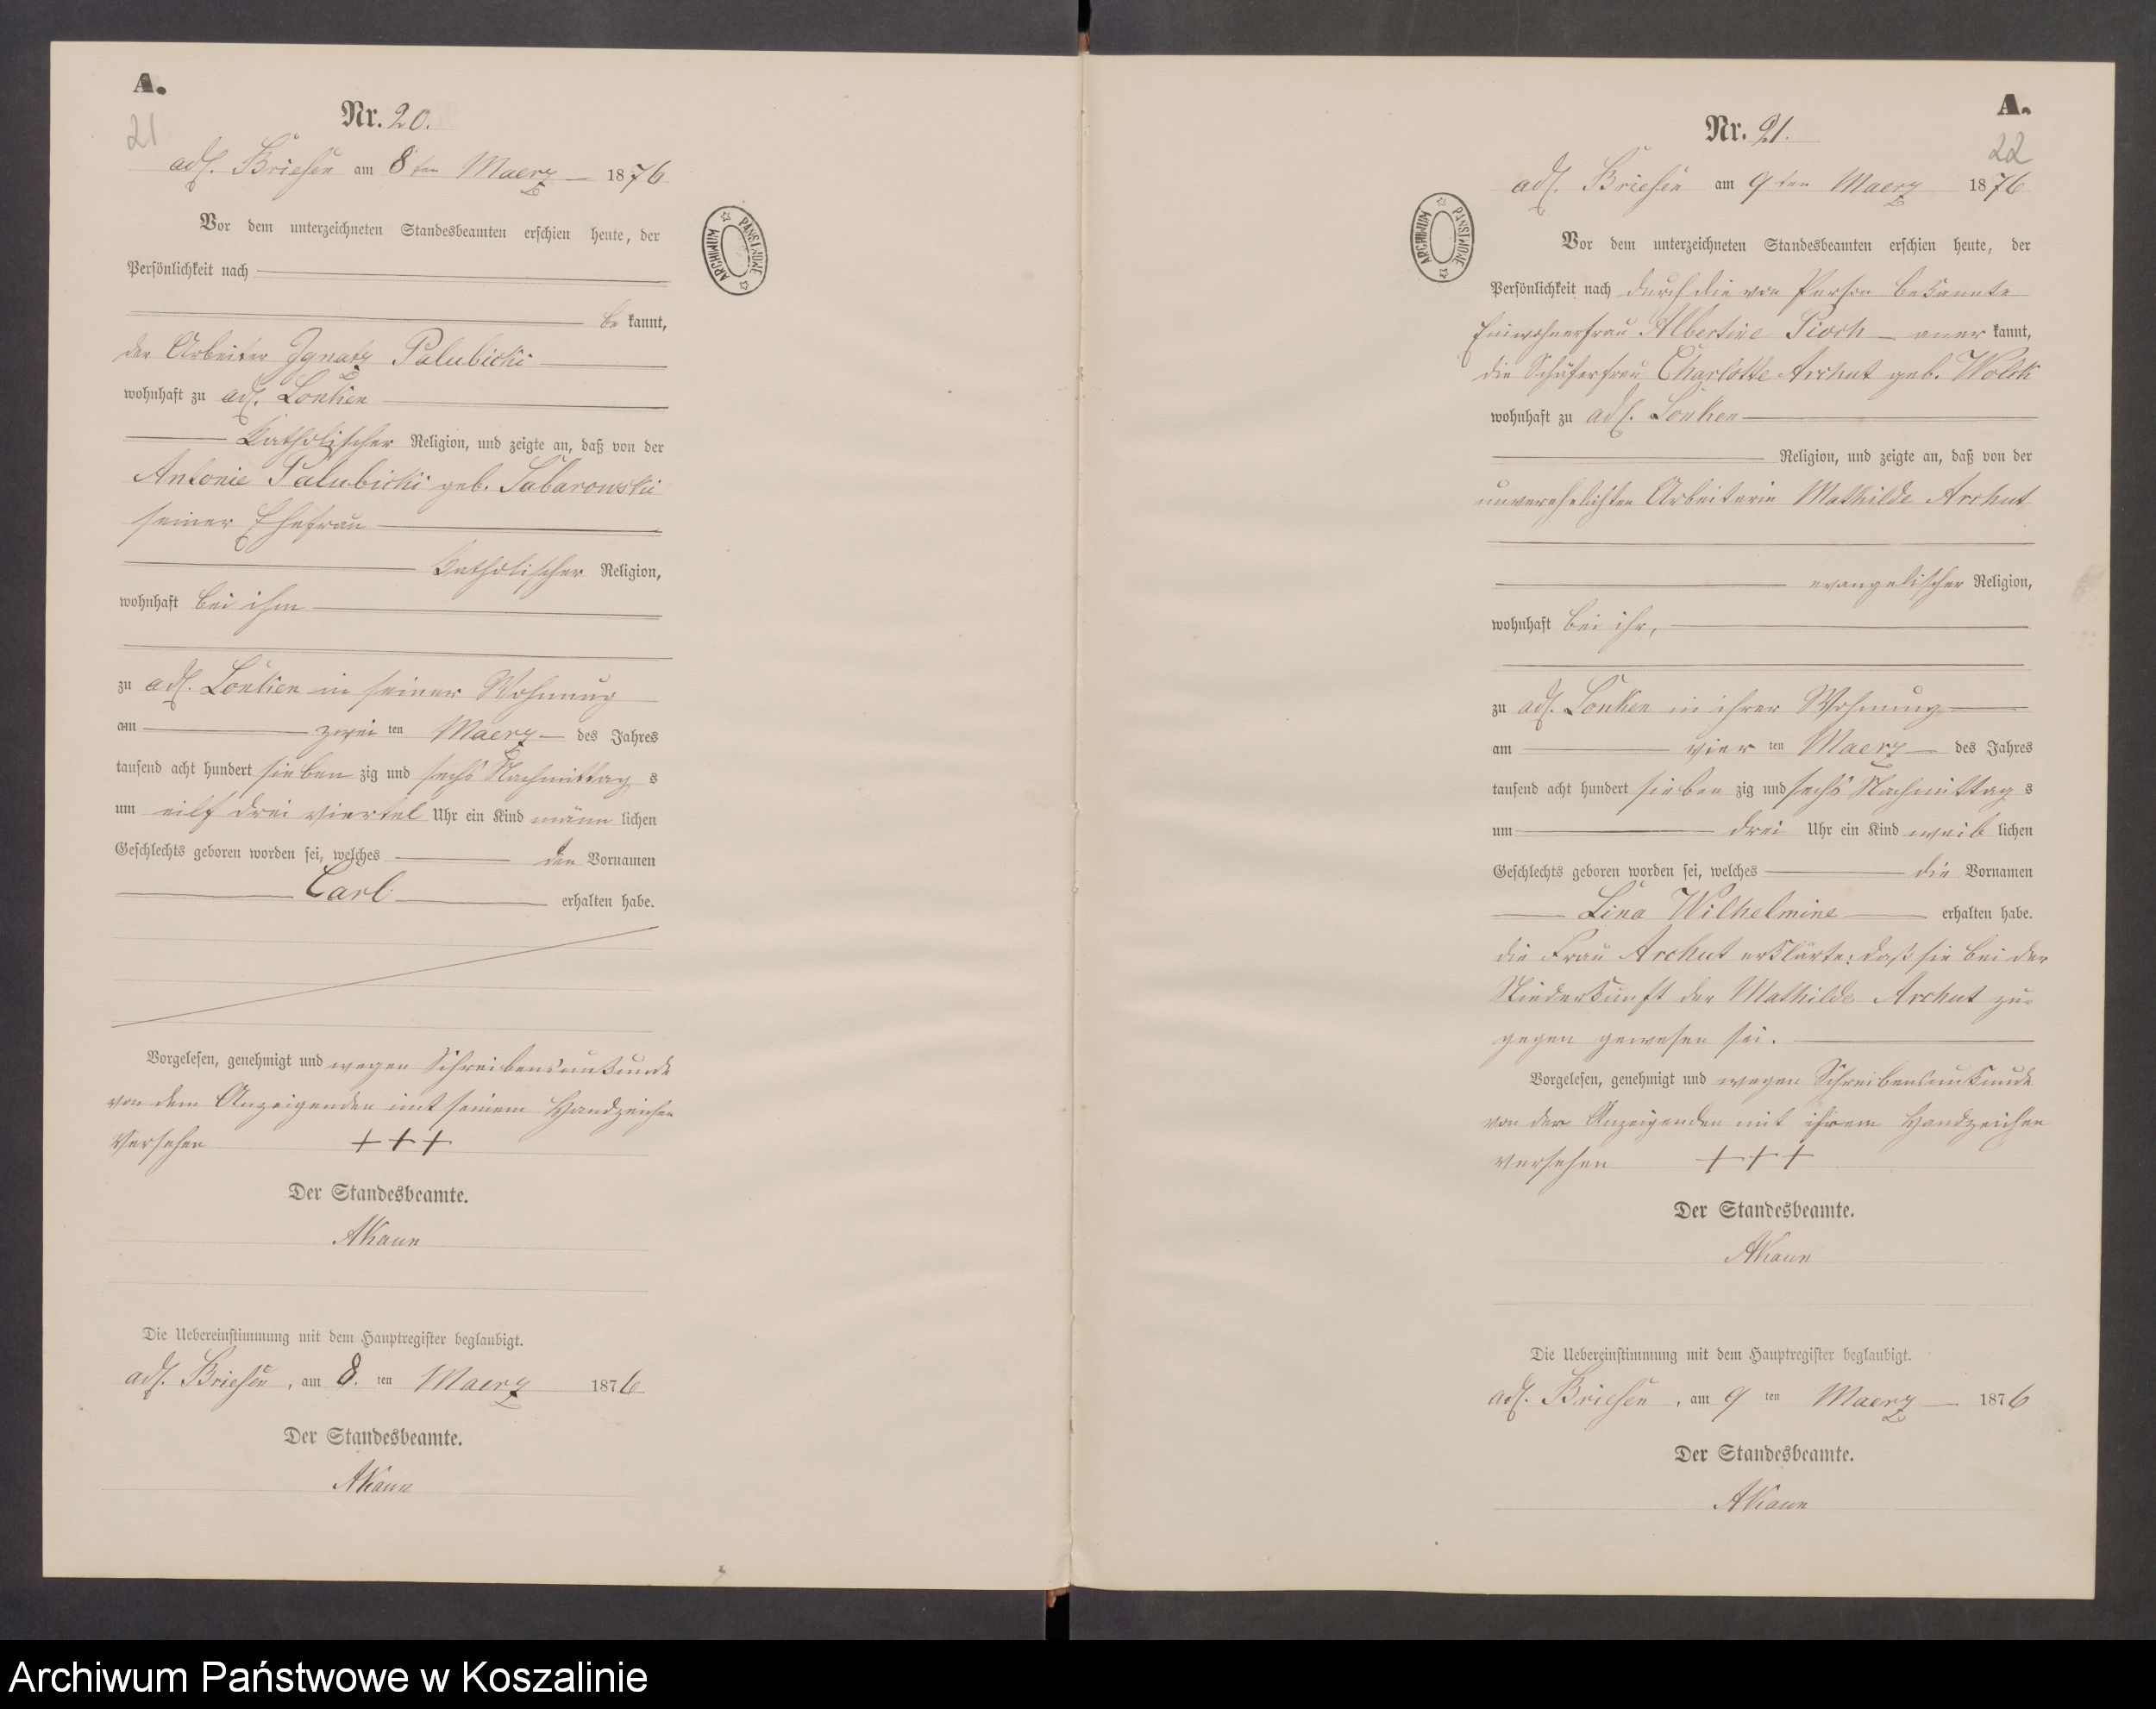 A.
21
Nr. 20.
adl. Briesen am 8ten Maerz 1876
Vor dem unterzeichneten Standesbeamten erschien heute, der
Persönlichkeit nach
be kannt,
der Arbeiter Ignatz Palubicki
wohnhaft zu adl. Lonken
katholischer Religion, und zeigte an, daß von der
Antonie Palubicki geb. Sabarowski
seiner Ehefrau
katholischer Religion,
wohnhaft bei ihm
zu adl. Lonken in seiner Wohnung
am zwei ten Maerz des Jahres
tausend acht hundert sieben zig und sechs Nachmittag s
um eilf drei viertel Uhr ein Kind männ lichen
Geschlechts geboren worden sei, welches den Vornamen
Carl erhalten habe.
Vorgelesen, genehmigt und wegen Schreibensunkunde
von dem Anzeigenden mit seinem Handzeichen
versehen +++
Der Standesbeamte.
AKaun
Die Uebereinstimmung mit dem Hauptregister beglaubigt.
adl. Briesen, am 8. ten Maerz 1876
Der Standesbeamte.
AKaun
ARCHIWUM PAŃSTWOWE
A.
22
Nr. 21.
adl. Briesen am 9ten Maerz 1876
Vor dem unterzeichneten Standesbeamten erschien heute, der
Persönlichkeit nach durch die von Person bekannte
Einwohnerfrau Albertine Pioch aner kannt,
die Schäferfrau Charlotte Archut geb. Wolck
wohnhaft zu adl. Lonken
Religion, und zeigte an, daß von der
unverehelichten Arbeiterin Mathilde Archut
evangelischer Religion,
wohnhaft bei ihr,
zu adl. Lonken in ihrer Wohnung
am vier ten Maerz des Jahres
tausend acht hundert sieben zig und sechs Nachmittag s
um drei Uhr ein Kind weib lichen
Geschlechts geboren worden sei, welches die Vornamen
Lina Wilhelmine erhalten habe.
die Frau Archut erklärte: daß sie bei der
Niederkunft der Mathilde Archut zu-
gegen gewesen sei.
Vorgelesen, genehmigt und wegen Schreibensunkunde
von der Anzeigenden mit ihrem Handzeichen
versehen +++
Der Standesbeamte.
AKaun
Die Uebereinstimmung mit dem Hauptregister beglaubigt.
adl. Briesen, am 9 ten Maerz 1876
Der Standesbeamte.
AKaun
ARCHIWUM PAŃSTWOWE
Archiwum Państwowe w Koszalinie